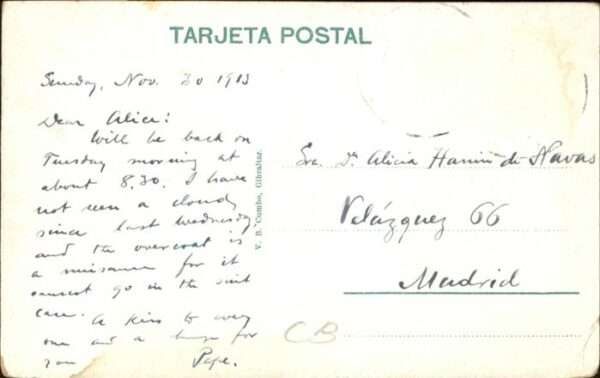 TARJETA POSTAL
Sunday, Nov. 30 1913
Dear Alice:
Will be back on
Tuesday morning at
about 8.30. I have
not seen a cloud
since last Wednesday
and the overcoat is
a nuisance for it
cannot go in the suit
case. A kiss to every
one and a for
you Pepe.
V. B. Cumbo, Gibraltar.
Sra. Da. Alicia de Navas
Velázquez 66
Madrid
CB